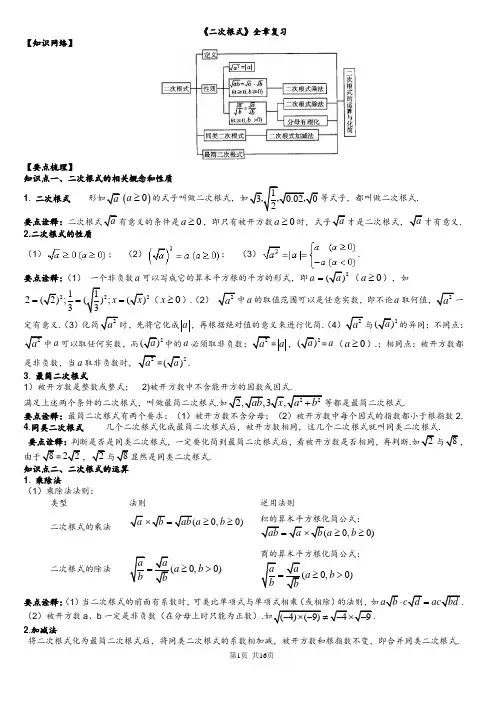 《二次根式》全章复习
【知识网络】
定义
二次根式
性质
√a² = |a|
√ab = √a · √b
(a≥0, b≥0)
√(a/b) = √a/√b
(a≥0, b>0)
二次根式乘法
二次根式除法
分母有理化
同类二次根式
二次根式加减法
最简二次根式
二次根式的运算与化简
【要点梳理】
知识点一、二次根式的相关概念和性质
1. 二次根式 形如√a(a≥0)的式子叫做二次根式,如√3,√(1/2),√0.02,√0等式子,都叫做二次根式.
要点诠释:二次根式√a有意义的条件是a≥0,即只有被开方数a≥0时,式子√a才是二次根式,√a才有意义.
2.二次根式的性质
(1)√a≥0(a≥0); (2)(√a)²=a(a≥0); (3)√a²=|a|={a (a≥0) −a (a<0).
要点诠释:(1) 一个非负数a可以写成它的算术平方根的平方的形式,即a=(√a)²(a≥0),如
2=(√2)²;1/3=(√(1/3))²;x=(√x)²(x≥0).(2) √a²中a的取值范围可以是任意实数,即不论a取何值,√a²一
定有意义.(3)化简√a²时,先将它化成|a|,再根据绝对值的意义来进行化简.(4)√a²与(√a)²的异同;不同点:
√a²中a可以取任何实数,而(√a)²中的a必须取非负数;√a²=|a|,(√a)²=a(a≥0).;相同点:被开方数都
是非负数,当a取非负数时,√a²=(√a)².
3. 最简二次根式
1)被开方数是整数或整式; 2)被开方数中不含能开方的因数或因式.
满足上述两个条件的二次根式,叫做最简二次根式.如√2,√ab,3√x,√(a²+b²)等都是最简二次根式.
要点诠释:最简二次根式有两个要求:(1)被开方数不含分母;(2)被开方数中每个因式的指数都小于根指数2.
4.同类二次根式 几个二次根式化成最简二次根式后,被开方数相同,这几个二次根式就叫同类二次根式.
要点诠释:判断是否是同类二次根式,一定要化简到最简二次根式后,看被开方数是否相同,再判断.如√2与√8,
由于√8=2√2,√2与√8显然是同类二次根式.
知识点二、二次根式的运算
1. 乘除法
(1)乘除法法则:
类型 法则 逆用法则
二次根式的乘法 √a×√b=√ab(a≥0,b≥0) 积的算术平方根化简公式:
√ab=√a×√b(a≥0,b≥0)
二次根式的除法 √a/√b=√(a/b)(a≥0,b>0) 商的算术平方根化简公式:
√(a/b)=√a/√b(a≥0,b>0)
要点诠释:(1)当二次根式的前面有系数时,可类比单项式与单项式相乘(或相除)的法则,如a√b·c√d=ac√bd.
(2)被开方数a、b一定是非负数(在分母上时只能为正数).如√((-4)×(-9))≠√-4×√-9.
2.加减法
将二次根式化为最简二次根式后,将同类二次根式的系数相加减,被开方数和根指数不变,即合并同类二次根式.
第1页 共16页